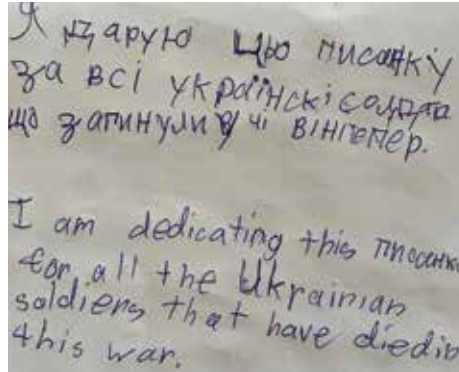 Я дарую цю писанку
за всі українскі солдати
що загинули у чі вінгепер.
I am dedicating this писанк
for all the Ukrainian
soldiers that have died in
this war.